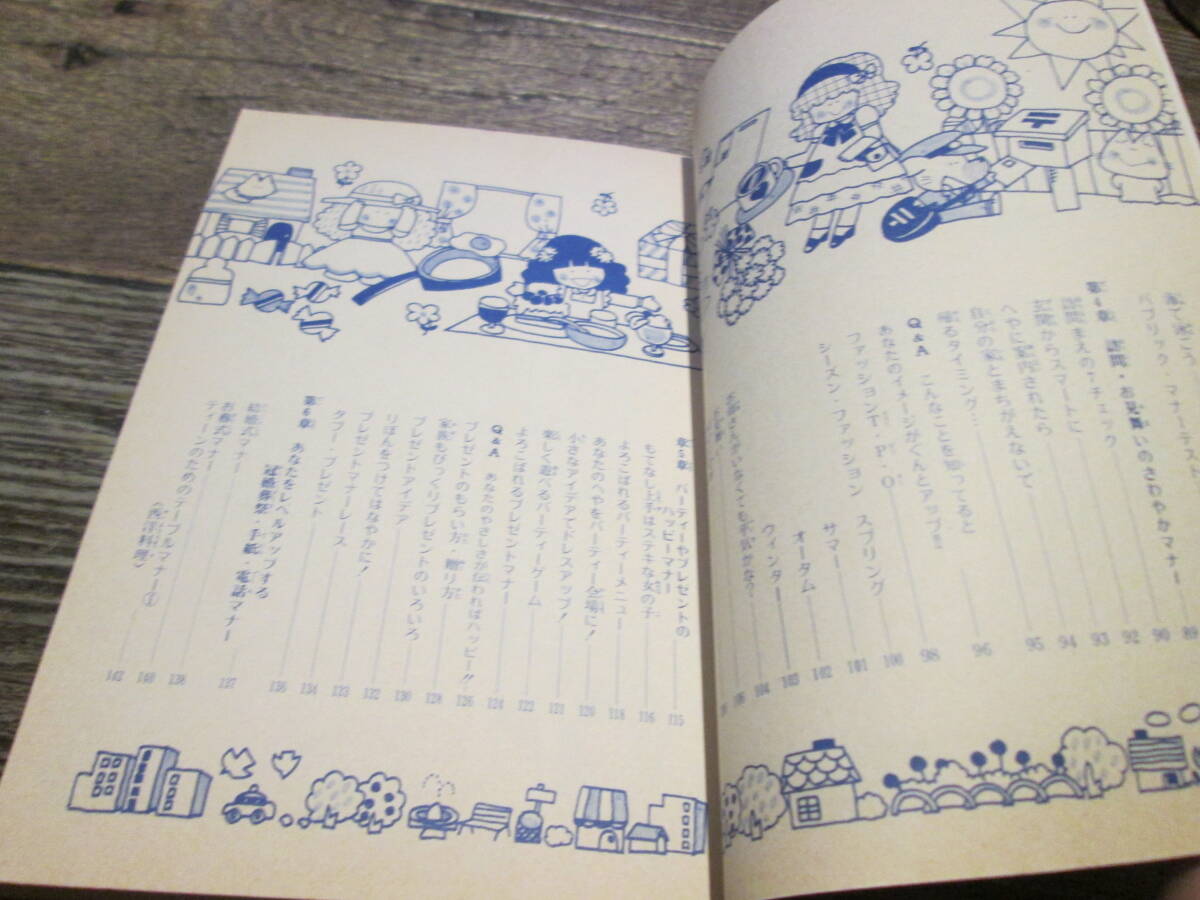 家で過ごう
パブリック・マナーテスト 89
第4章 訪問・お見舞いのさわやかマナー 90
訪問まえの7チェック 92
玄関からスマートに 93
へやに案内されたら 94
自分の家とまちがえないで 95
帰るタイミング… 96
Q&A こんなことを知ってると
あなたのイメージがぐんとアップ!! 98
ファッションT・P・O 100
シーズン・ファッション スプリング 101
サマー 102
オータム 103
ウィンター 104
106
章5章 パーティーやプレゼントの
ハッピーマナー 115
もてなし上手はステキな女の子 116
よろこばれるパーティーメニュー 118
あなたのへやをパーティー会場に! 120
小さなアイデアでドレスアップ! 121
楽しく遊べるパーティーゲーム 122
よろこばれるプレゼントマナー 124
Q&A あなたのやさしさが伝わればハッピー!! 126
プレゼントのもらい方・贈り方 128
家族もびっくりプレゼントのいろいろ 130
プレゼントアイデア 132
りぼんをつけてはなやかに! 133
プレゼントマナーレース 134
タブー・プレゼント
第6章 あなたをレベルアップする
冠婚葬祭・手紙・電話マナー 136
結婚式マナー 137
お葬式マナー 138
ティーンのためのテーブルマナー① 140
(西洋料理) 142